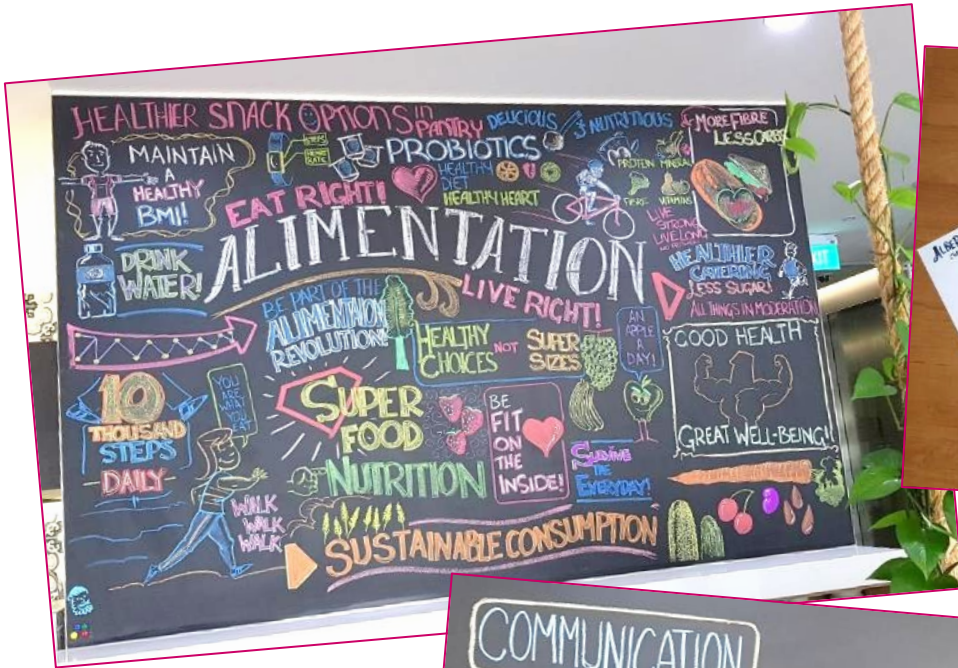 HEALTHIER SNACK OPTIONS in PANTRY
DELICIOUS & NUTRITIOUS
& MORE FIBRE
LESS CARBS
MAINTAIN
A
HEALTHY
BMI!
STEPS
HEART
RATE
PROBIOTICS
HEALTHY
DIET
HEALTHY HEART
EAT RIGHT!
PROTEIN
MINERAL
FIBRE
VITAMINS
LIVE
STRONG
LIVE LONG
ALIMENTATION
DRINK
WATER!
HEALTHIER
CATERING
LESS SUGAR!
ALL THINGS IN MODERATION
BE PART OF THE
ALIMENTATION
REVOLUTION!
LIVE RIGHT!
HEALTHY
CHOICES
NOT
SUPER
SIZES
AN
APPLE
A
DAY!
GOOD HEALTH
GREAT WELL-BEING!
10
THOUSAND
STEPS
DAILY
YOU
ARE
WHAT
YOU
EAT
SUPER
FOOD
NUTRITION
BE
FIT
ON
THE
INSIDE!
SURVIVE
THE
EVERYDAY!
WALK
WALK
WALK
SUSTAINABLE CONSUMPTION
EXIT
ALBER
COMMUNICATION